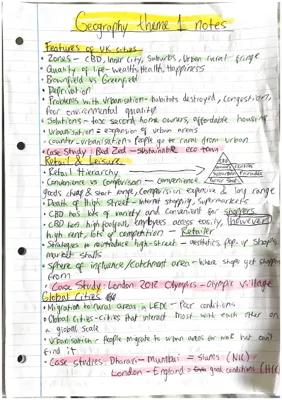 Geography theme 1 notes
Features of UK cities
• Zones - CBD, Inner City, Suburbs, Urban rural fringe
• Quality of life - Wealth, Health, Happiness
• Brownfield vs Greenfield
• Deprivation
• Problems with Urbanisation - habitats destroyed, congestion,
Poor environmental quality
• Solutions - tax second home owners, affordable housing
• Urbanisation = expansion of urban areas
• counter-urbanisation = People go to rural from urban
• Case Study: Bed Zed - Sustainable eco town
Retail & Leisure
• Retail Hierarchy
• Convenience vs comparison - convenience
goods cheap & short range, comparison expensive & long range
• Death of High street - Internet shopping, supermarkets
• CBD has lots of variety and convenient for shoppers
• CBD has high footfall, employees access easily, However
high rent, lots of competition - Retailer
• Strategies to reintroduce high-street - aesthetics, pop up shops,
market stalls
• Sphere of influence/catchment area - Where shops get shoppers
from
• Case Study: London 2012 Olympics - Olympic village
Global Cities
• Migration to rural areas in LEDC - Poor conditions
• Global cities - cities that interact most with each other on
a global scale
• Urbanisation - People migrate to urban areas for work but can't
find it
• Case studies: Dharavi - Mumbai = slums (NIC)
London - England = good conditions (HIC)